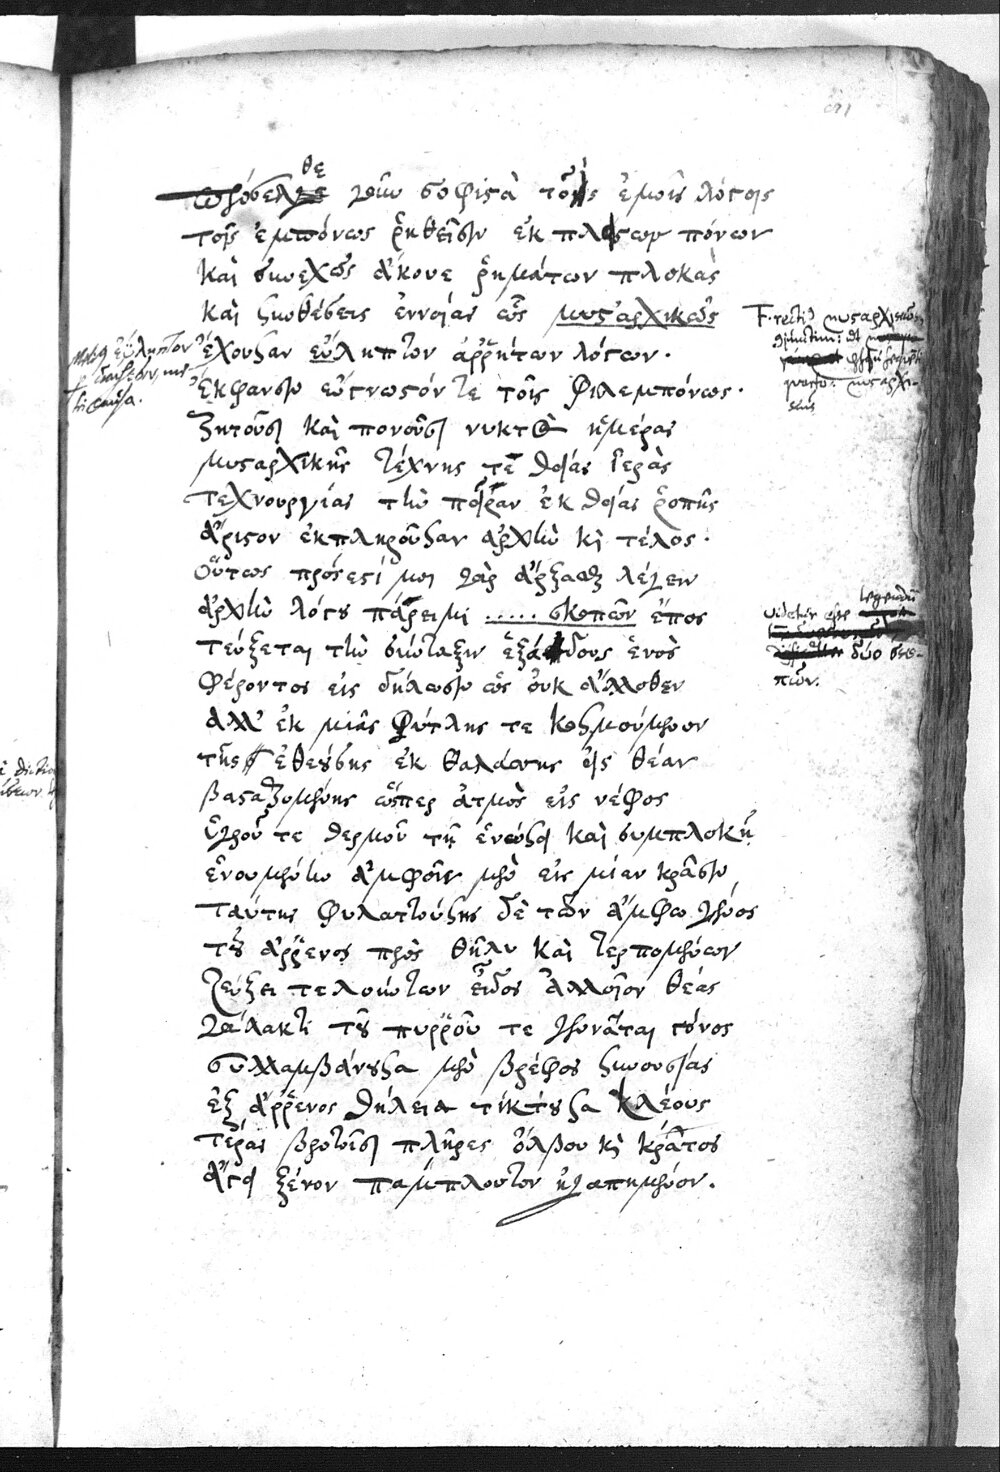 πρόσελθε γοῦν σοφιστὰ τοῖς ἐμοῖς λόγοις
τοῖς ἐμπόνως ῥηθεῖσιν ἐκ πλείστων πόνων
καὶ συνεχῶς ἄκουε ῥημάτων πλοκὰς
καὶ συνθέσεις ἐννοίας ὡς μυσταρχικῶς
ἔχουσαν εὔληπτον ἀῤῥήτων λόγων.
ἔκφανσιν εὔγνωστόν τε τοῖς φιλεμπόνως.
ζητοῦσι καὶ πονοῦσι νυκτὸς ἡμέρας
μυσταρχικῆς τέχνης τε θείας ἱερᾶς
τεχνουργίας τὴν πεῖραν ἐκ θείας ῥοπῆς
ἄριστον ἐκπληροῦσαν ἀρχὴν κὶ τέλος.
οὕτως πρόσεστί μοι γὰρ ἄρξασθαι λέγειν
ἀρχὴν λόγου πάρειμι ...... σκοπῶν ἔπος
τεύξεται τὴν σύνταξιν ἑξάδους ἑνὸς
φέροντος εἰς δήλωσιν ὡς οὐκ ἄλλοθεν
ἀλλ' ἐκ μιᾶς φύτλης τε κοσμούμενον
τῆς ἐθούσης ἐκ θαλάσσης εἰς θέαν
βασταζομένης ὥσπερ ἀτμὸς εἰς νέφος
ὑγροῦ τε θερμοῦ τῇ ἑνώσει καὶ συμπλοκῇ
ἑνουμένων ἀμφοῖν μὲν εἰς μίαν κρᾶσιν
ταύτης φυλαττούσης δὲ τῶν ἄμφω γένος
τοῦ ἄῤῥενος πρὸς θῆλυ καὶ τερπομένων
ζεύξει τελούντων εἶδος ἀλλοῖον θέας
γάλακτι τοῦ πυῤῥοῦ τε γεννᾶται γόνος
συλλαμβάνουσα μὲν βρέφος συνουσίας
ἐξ ἄῤῥενος θήλεια τίκτουσα κλέους
τέρας βροτοῖσι πλῆρες ὄλβου κὶ κράτος
ἄγει ξένον παμπλουτον ἠγαπημένον.
videtur esse legendum
δύο σκοπῶν.